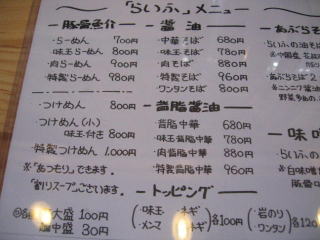 「らいふ」メニュー
-豚骨魚介-
・らーめん 700円
・味玉らーめん 800円
・肉らーめん 900円
・特製らーめん 980円
・つけめん 800円
・つけめん(小)
味玉付き 800円
・特製つけめん 1.000円
※「あつもり」できます。
「割りスープ」ございます。
-醤油-
・中華そば 680円
・味玉そば 780円
・肉そば 880円
・特製そば 960円
・ワンタンそば 800円
-背脂醤油-
・背脂中華 680円
・味玉背脂中華 780円
・肉背脂中華 880円
・特製背脂中華 960円
-あぶらそ
・らいふの油そば
・あぶらそば2
-味噌
・らいふの
※白味噌
豚骨
-トッピング-
大盛 100円
中盛 30円
(・味玉 ・ネギ
・メンマ ・ネギ)各100円
(・岩のり
・ワンタン)各120